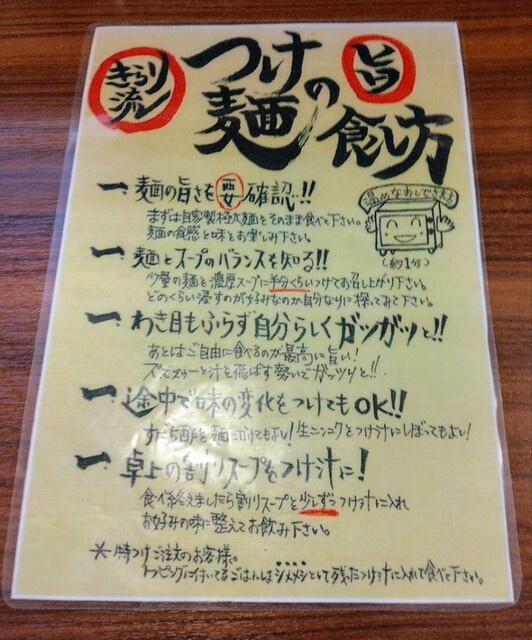 きらり流
つけ麺の旨い食し方
一、麺の旨さを要確認!!
まずは自家製極太麺をそのまま食べて下さい。
麺の食感と味をお楽しみ下さい。
温めなおしできます
(約1分)
一、麺とスープのバランスを知る!!
少量の麺を濃厚スープに半分くらいつけてお召し上がり下さい。
どのくらい浸すのが好みなのか自分なりに探してみて下さい。
一、わき目もふらず自分らしくガツガツと!!
あとはご自由に食べるのが最高に旨い!
ズズズッーと汁を飛ばす勢いでガッツリと!!
一、途中で味の変化をつけてもOK!!
すだち酢を麺にかけてもよい!生ニンニクをつけ汁にしぼってもよい!
一、卓上の割りスープをつけ汁に!
食べ終えましたら割りスープを少しずつつけ汁に入れ
お好みの味に整えてお飲み下さい。
※特つけご注文のお客様。
トッピングに付いてるごはんはシメメシとして残ったつけ汁に入れて食べて下さい。